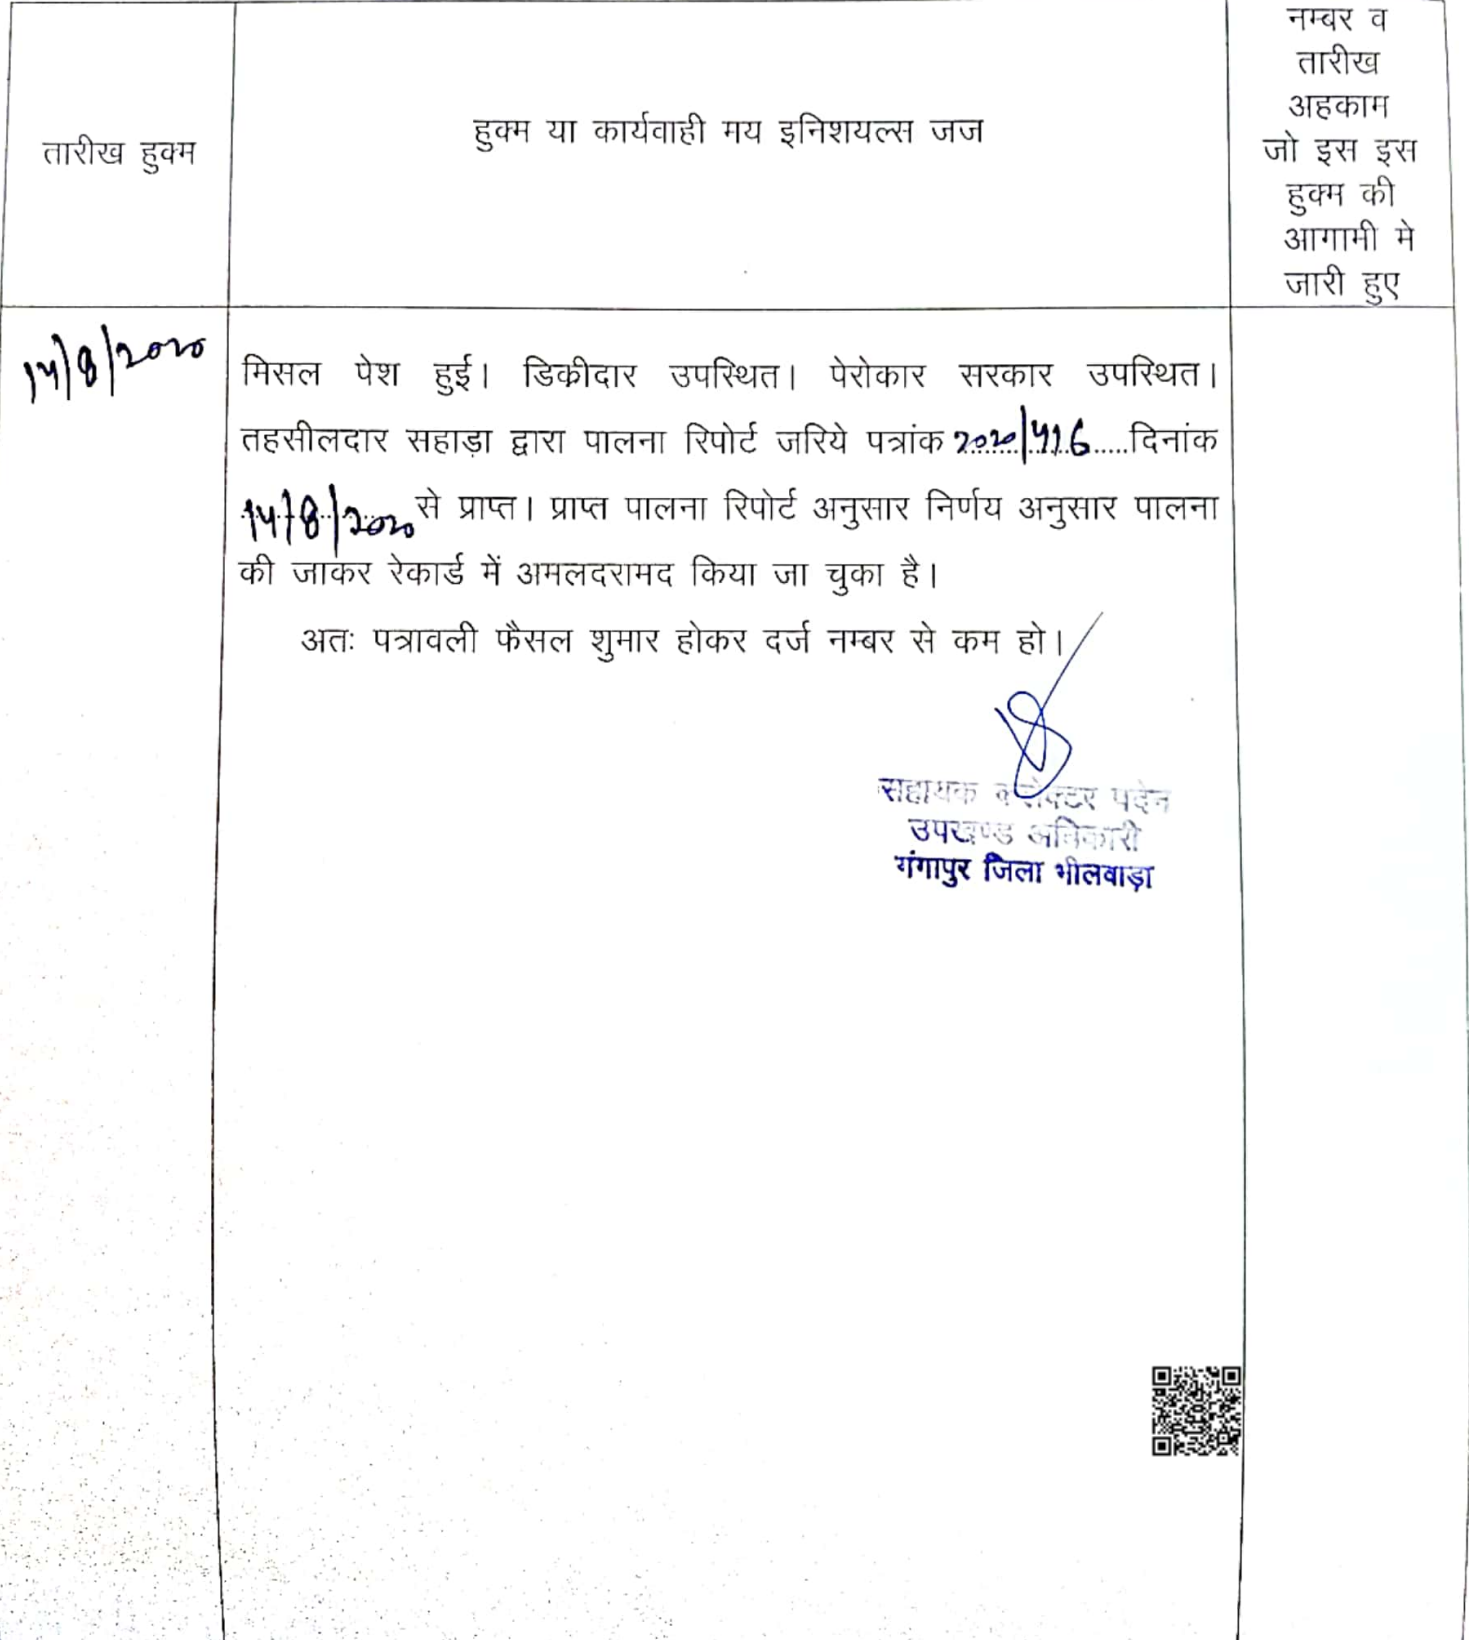 तारीख हुक्म
हुक्म या कार्यवाही मय इनिशयल्स जज
नम्बर व
तारीख
अहकाम
जो इस इस
हुक्म की
आगामी मे
जारी हुए
14/8/2020
मिसल पेश हुई। डिकीदार उपस्थित। पेरोकार सरकार उपस्थित।
तहसीलदार सहाड़ा द्वारा पालना रिपोर्ट जरिये पत्रांक 2020/416.....दिनांक
14/8/2020 से प्राप्त। प्राप्त पालना रिपोर्ट अनुसार निर्णय अनुसार पालना
की जाकर रेकार्ड में अमलदरामद किया जा चुका है।
अतः पत्रावली फैसल शुमार होकर दर्ज नम्बर से कम हो।
सहायक कलेक्टर पदेन
उपखण्ड अधिकारी
गंगापुर जिला भीलवाड़ा